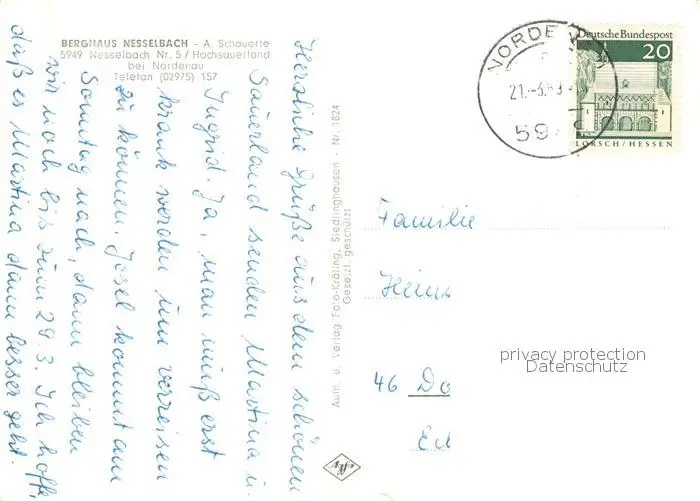 BERGHAUS NESSELBACH - A. Schauerte
5949 Nesselbach Nr. 5 / Hochsauerland
bei Nordenau
Telefon (02975) 157
Herzliche Grüße aus dem schönen
Sauerland senden Martina u.
Ingrid. Ja, man muß erst
krank werden um verreisen
zu können. Josel kommt am
Sonntag nach, dann bleiben
wir noch bis zum 29.3. Ich hoffe,
daß es Martina dann besser geht.
Aufn. u. Verlag Foto-Kräling, Siedlinghausen - Nr. 1824
Gesetzl. geschützt
NORDENAU
21.-3.69
59
Deutsche Bundespost
20
LORSCH / HESSEN
Familie
Heinz
46 Do
privacy protection
Datenschutz